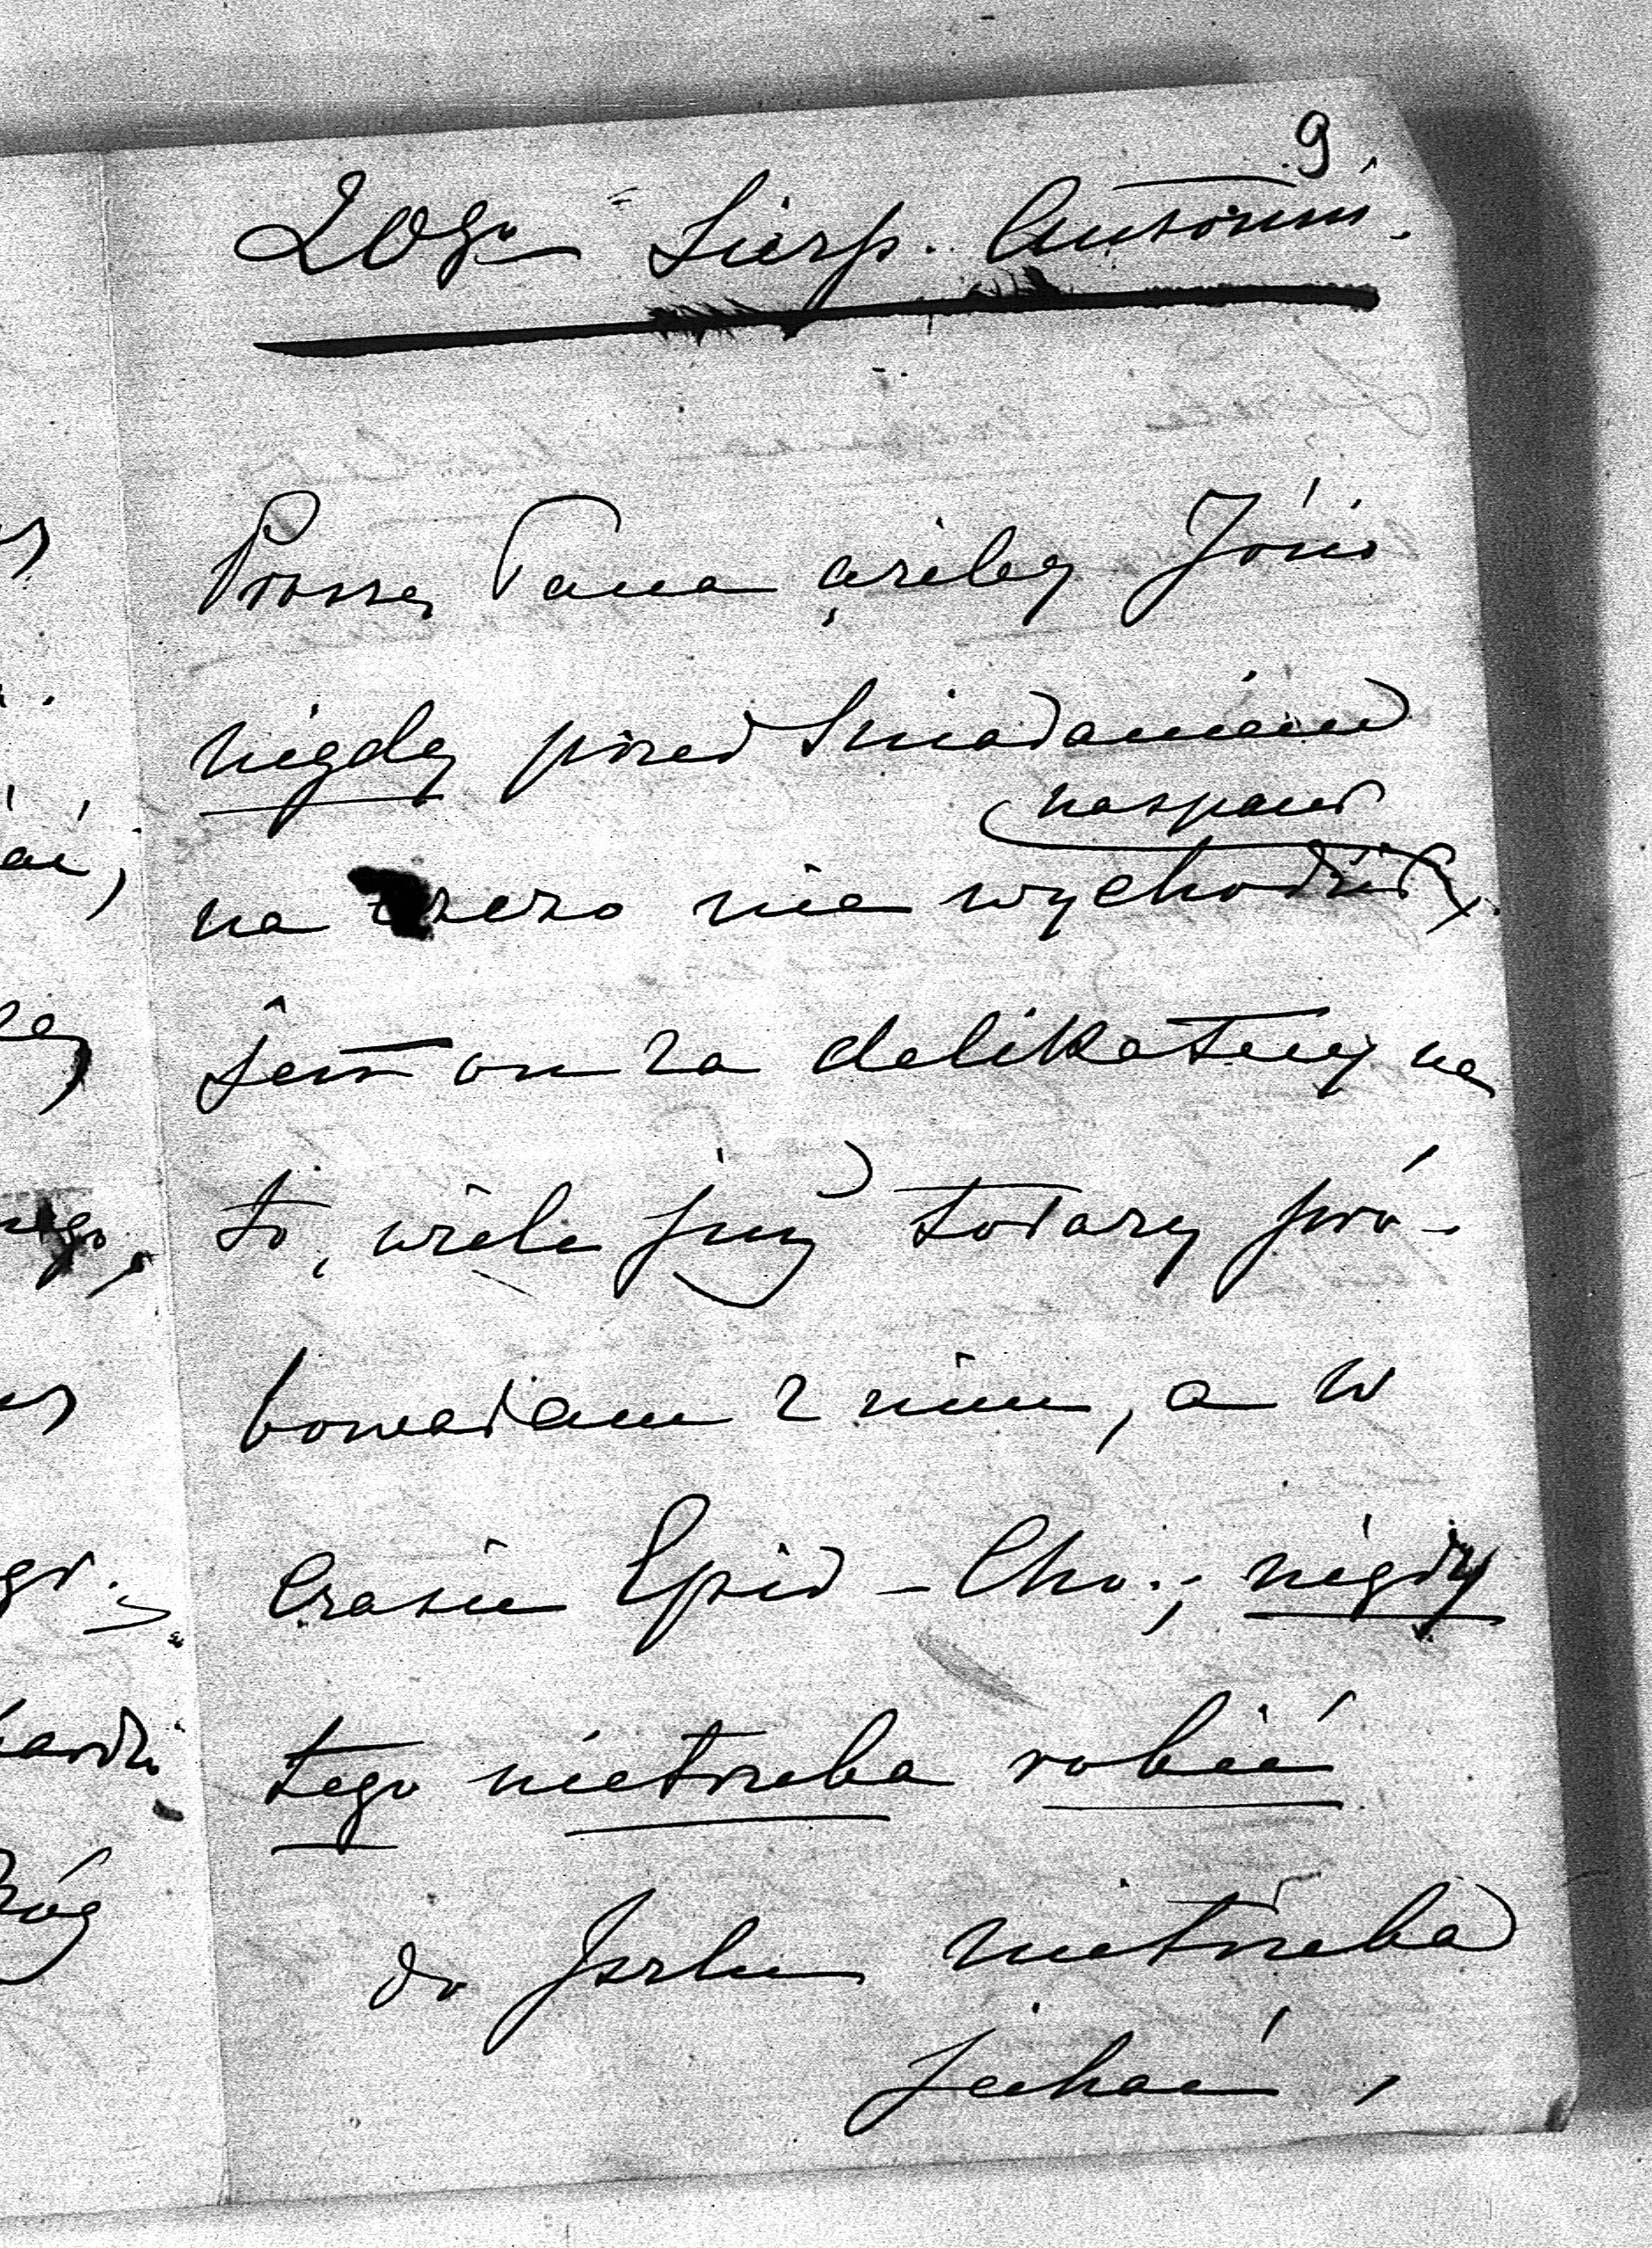 9.
20go Sierp. Antonin.
Proszę Pana ażeby Józio
nigdy przed sniadaniem
naspacer
na czczo nie wychodził,
jest on za delikatny na
to, wiele już totazy pró-
bowałam z nim, a w
czasie Epid - Cho.; nigdy
tego nietrzeba robić
do nietrzeba
jechać,